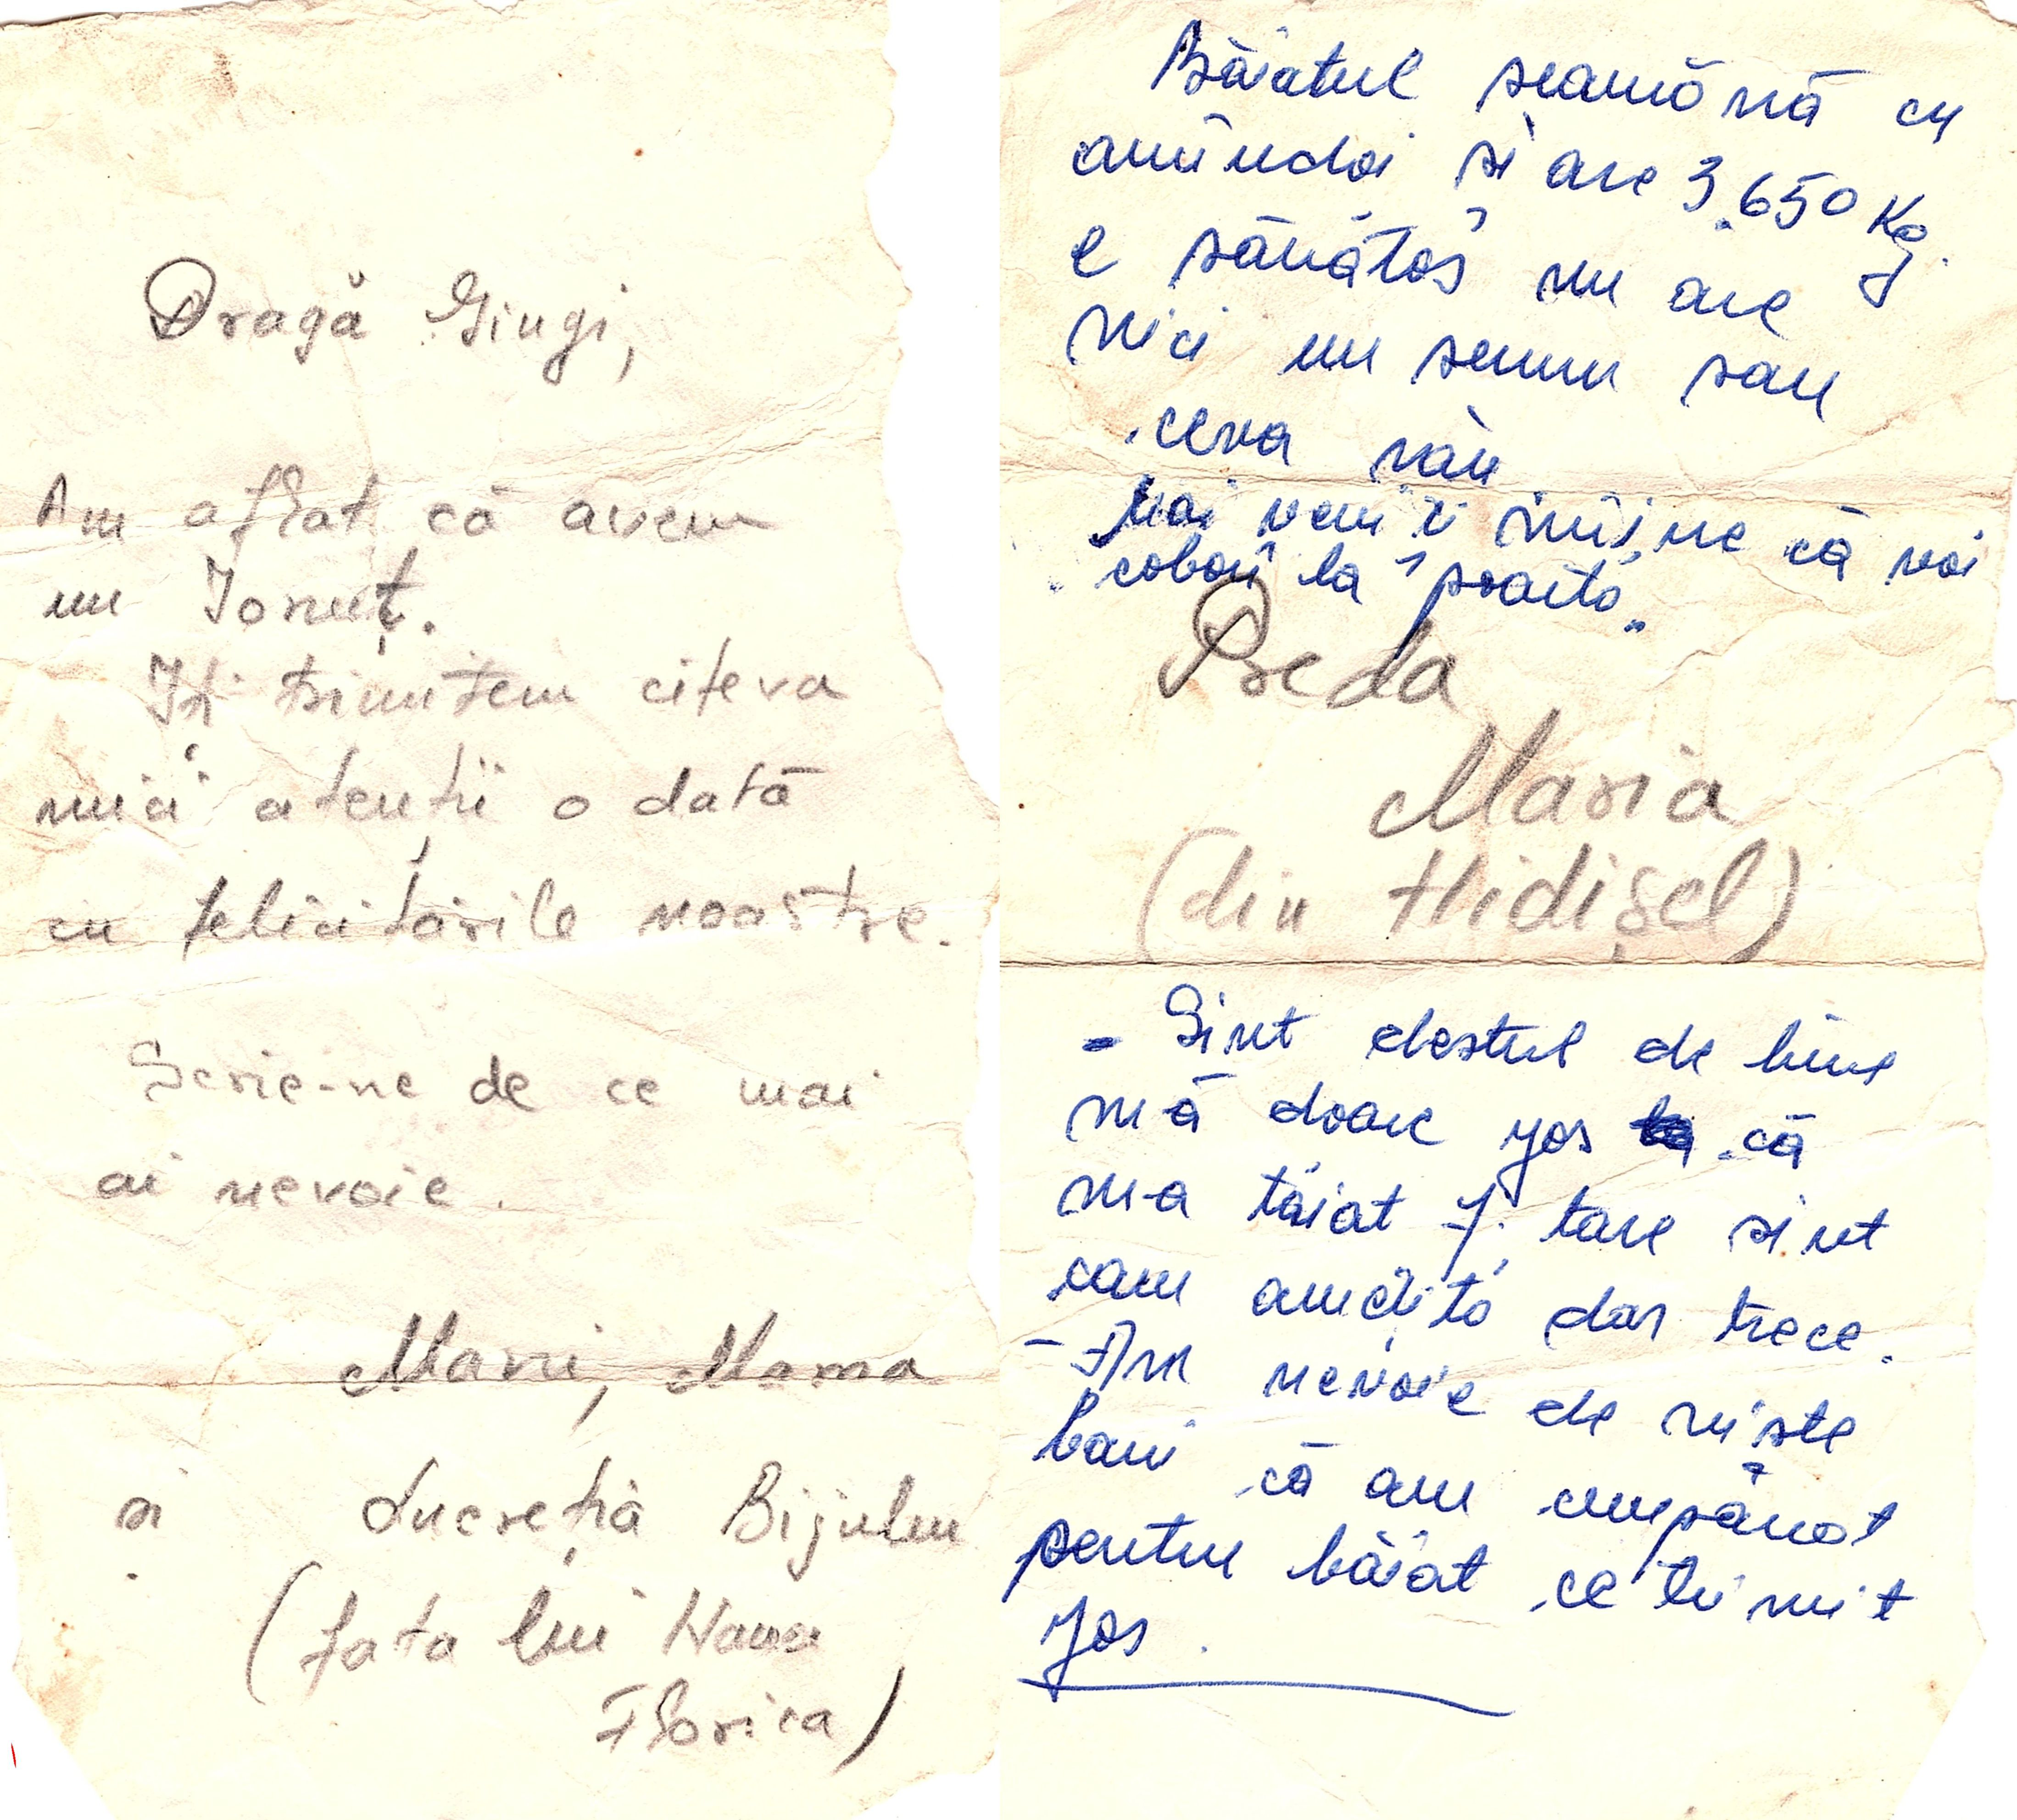 Dragă Giugi,
Am aflat că avem
un Ionuț.
Iți trimitem cîteva
mici atenții o dată
cu felicitările noastre.
Scrie-ne de ce mai
ai nevoie.
Mari, Mama
și Lucreția Bijulen
(fata lui Nana
Florica)
Băiatul seamănă cu
amîndoi și are 3.650 Kg.
e sănătos nu are
nici un semn sau
ceva rău
Mai veniți mîine că voi
coborî la poartă.
Preda
Maria
(din Hidișel)
- Sint destul de bine
mă doare jos că
m-a tăiat f. tare sint
cam amețită dar trece.
- Am nevoie de niște
bani că am cumpărat
pentru băiat ce trimit
jos.